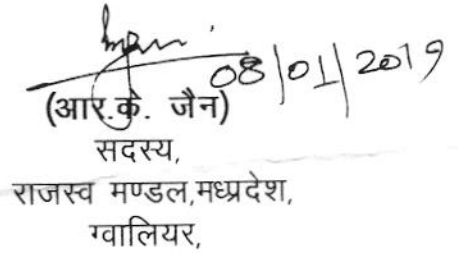 08/01/2019
(आर.के. जैन)
सदस्य,
राजस्व मण्डल,मध्यप्रदेश,
ग्वालियर,